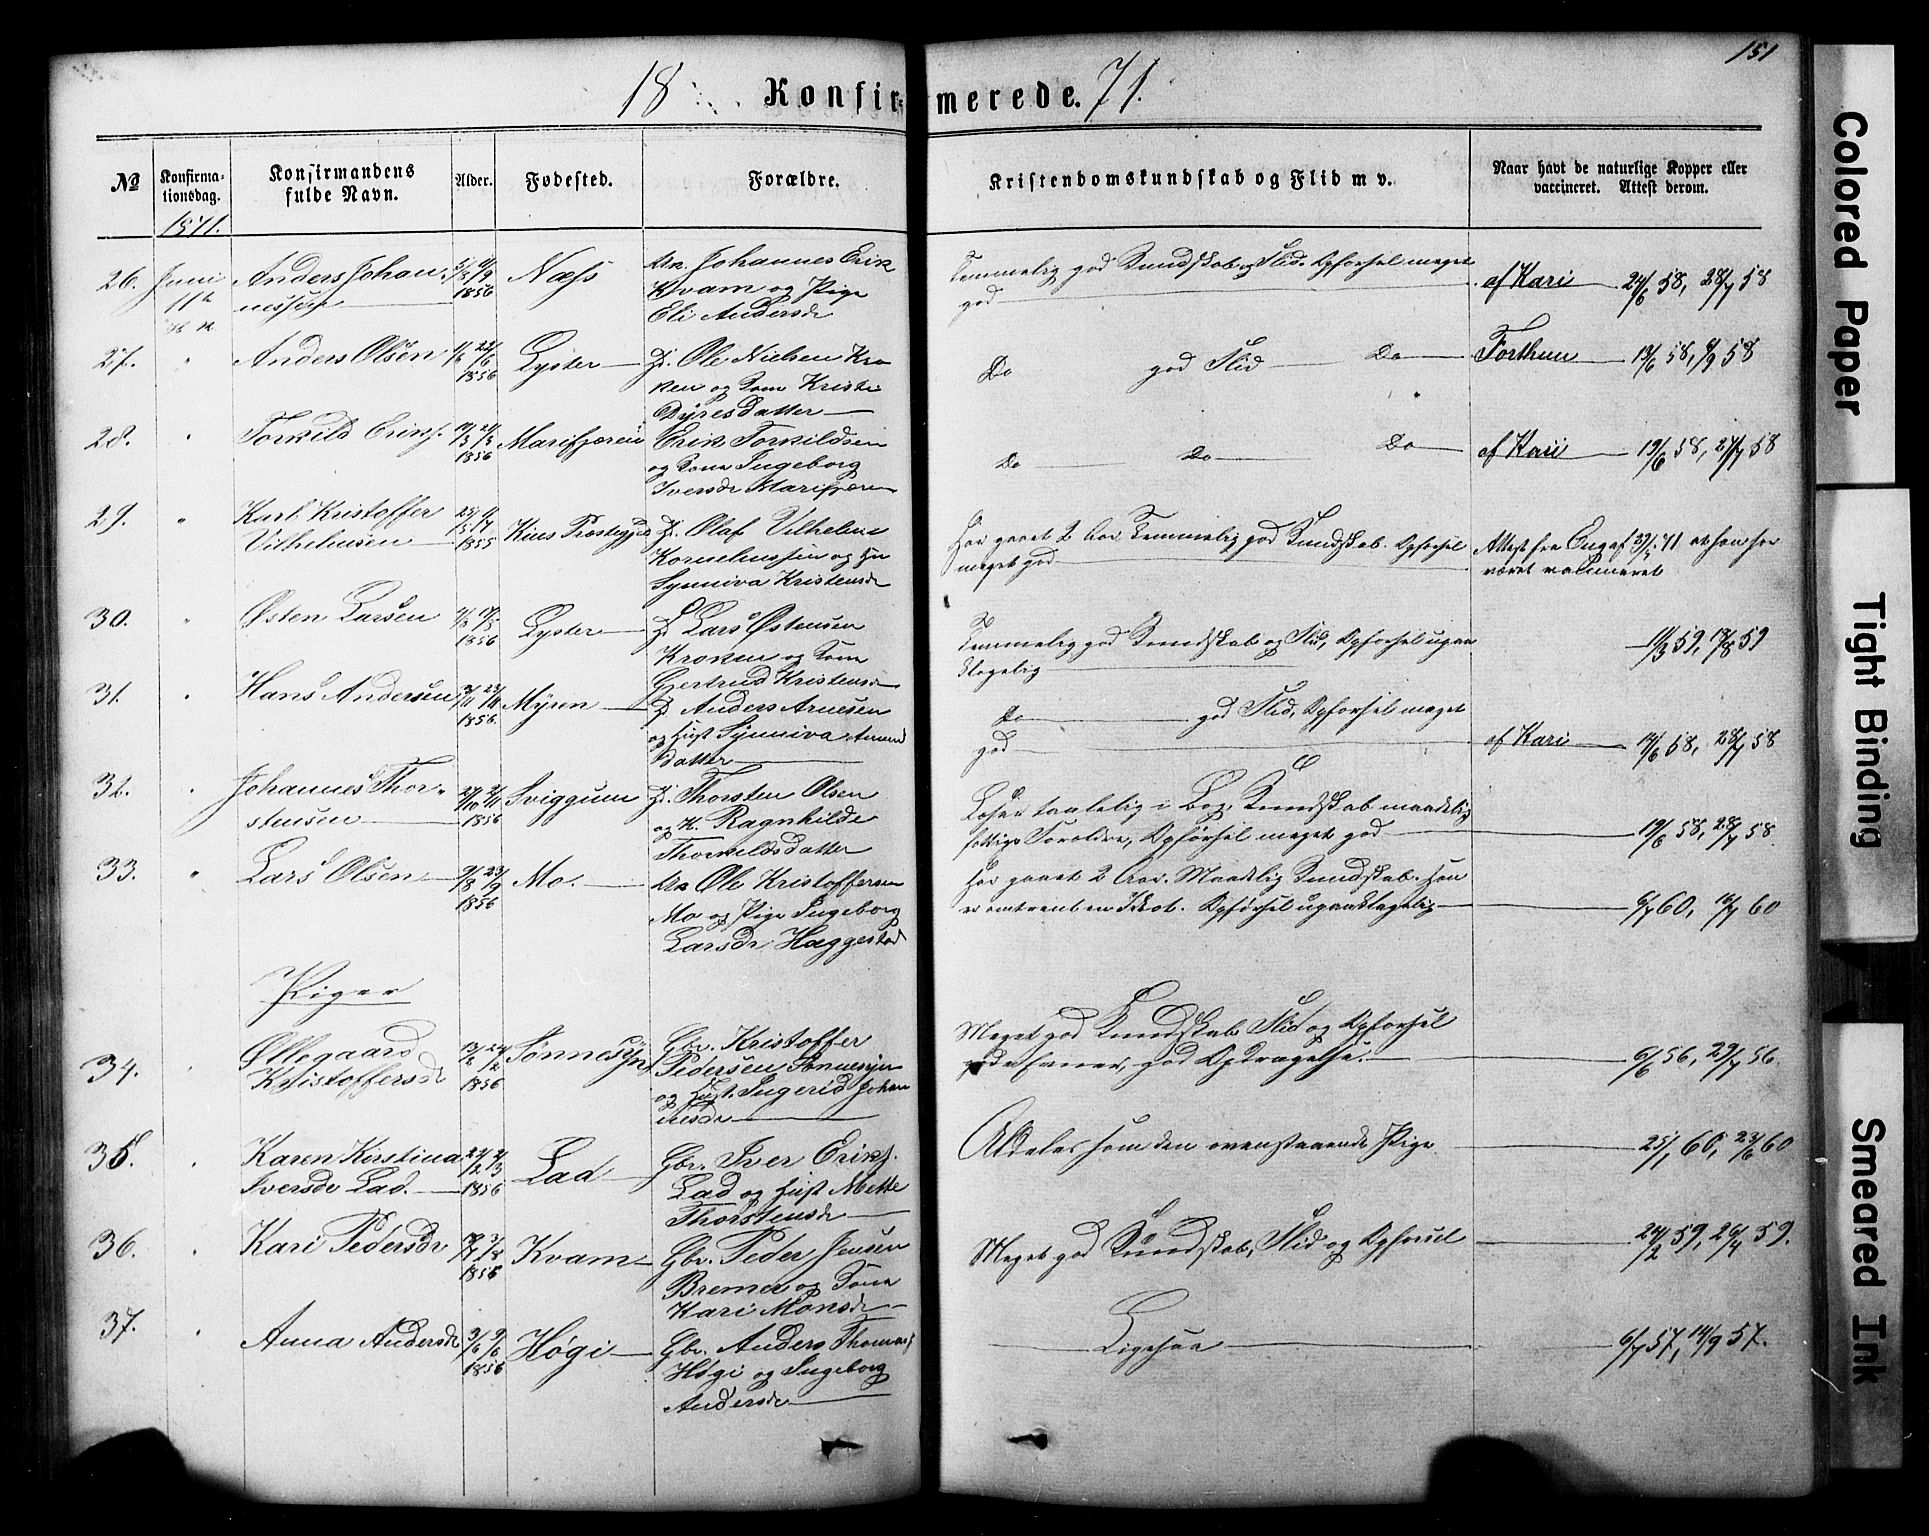 151
18 Konfirmerede. 71.
№
Konfirmationsdag.
Konfirmandens fulde Navn.
Alder.
Fødested.
Forældre.
Kristendomskundskab og Flid m v.
Naar havt de naturlige Kopper eller vaccineret. Attest derom.
1871.
26. Juni 11te Anders Johan-
nessen 1856 Næss
Johannes Erik
Kvam og Pige
Eli Andersdr
Temmelig god Kundskab og Flid. Opførsel meget
god
af Kari 24/6 58, 28/7 58
27. " Anders Olsen 1856 Lyster
Ole Nielsen Kro
ken og Kone Kristi
Dyresdatter
Do god Flid Do Forthun 18/6 58, 8/9 58
28. " Torkild Eriks. 1856 Marifjæren
Erik Torkildsen
og Kone Ingeborg
Iversdr Marifjæren
Do Do Do af Kari 19/6 58, 27/7 58
29. " Karl Kristoffer
Vilhelmsen 1855 Præstegjæld
Olaf Vilhelm
Korneliussen og
Synniva Kristensdr
Har gaaet 2 Aar. Temmelig god Kundskab. Opførsel
meget god
Attest fra 71 at han har
været vaccineret
30. " Østen Larsen 1856 Lyster
Lars Østensen
Kroken og Kone
Gjertrud Kristensdr
Temmelig god Kundskab og Flid, Opførsel upaa
klagelig
11/3 59, 18/8 59
31. " Hans Andersen 1856 Myren
Anders Arnesen
og Hust Synniva Amund
datter
Do god Flid, Opførsel meget
god af Kari 14/6 58, 28/7 58
32. " Johannes Thor-
stensen 1856 Sviggum
Thorsten Olsen
og H. Ragnhilde
Thorkildsdatter
Læser taalelig i Bog, Kundskab maadelig
fattige Forældre, Opførsel meget god
19/6 58, 28/7 58.
33. " Lars Olsen 1856 Mo.
Ole Kristoffersen
Mo og Pige Ingeborg
Larsdr Haggestad
Har gaaet 2 Aar. Maadelig Kundskab. Han
er omtrent en Idiot. Opførsel upaaklagelig
6/7 60, 16/7 60
Piger
34. " Øllegaard
Kristoffersdr 1856 Sønnesyn
Gbr. Kristoffer
Pedersen Sønnesyn
og Hust. Ingerid Johan
nesdr
Meget god Kundskab Flid og Opførsel
god Opdragelse.
6/6 56, 29/7 56.
35. " Karen Kirstina
Iversdr Lad. 1856 Lad
Gbr. Iver Eriks.
Lad og Hust Mette
Thorstensdr
Aldeles som den ovenstaaende Pige
25/1 60, 23/6 60
36. " Kari Pedersdr 1856 Kvam
Gbr. Peder Jensen
Bremer og Kone
Kari Monsdr
Meget god Kundskab, Flid og Opførsel
24/2 59, 26/4 59.
37. " Anna Andersdr 1856 Høgi
Gbr. Anders Thomas
Høgi og Ingeborg
Andersdr
Ligesaa
6/7 57, 14/9 57.
Colored Paper
Tight Binding
Smeared Ink